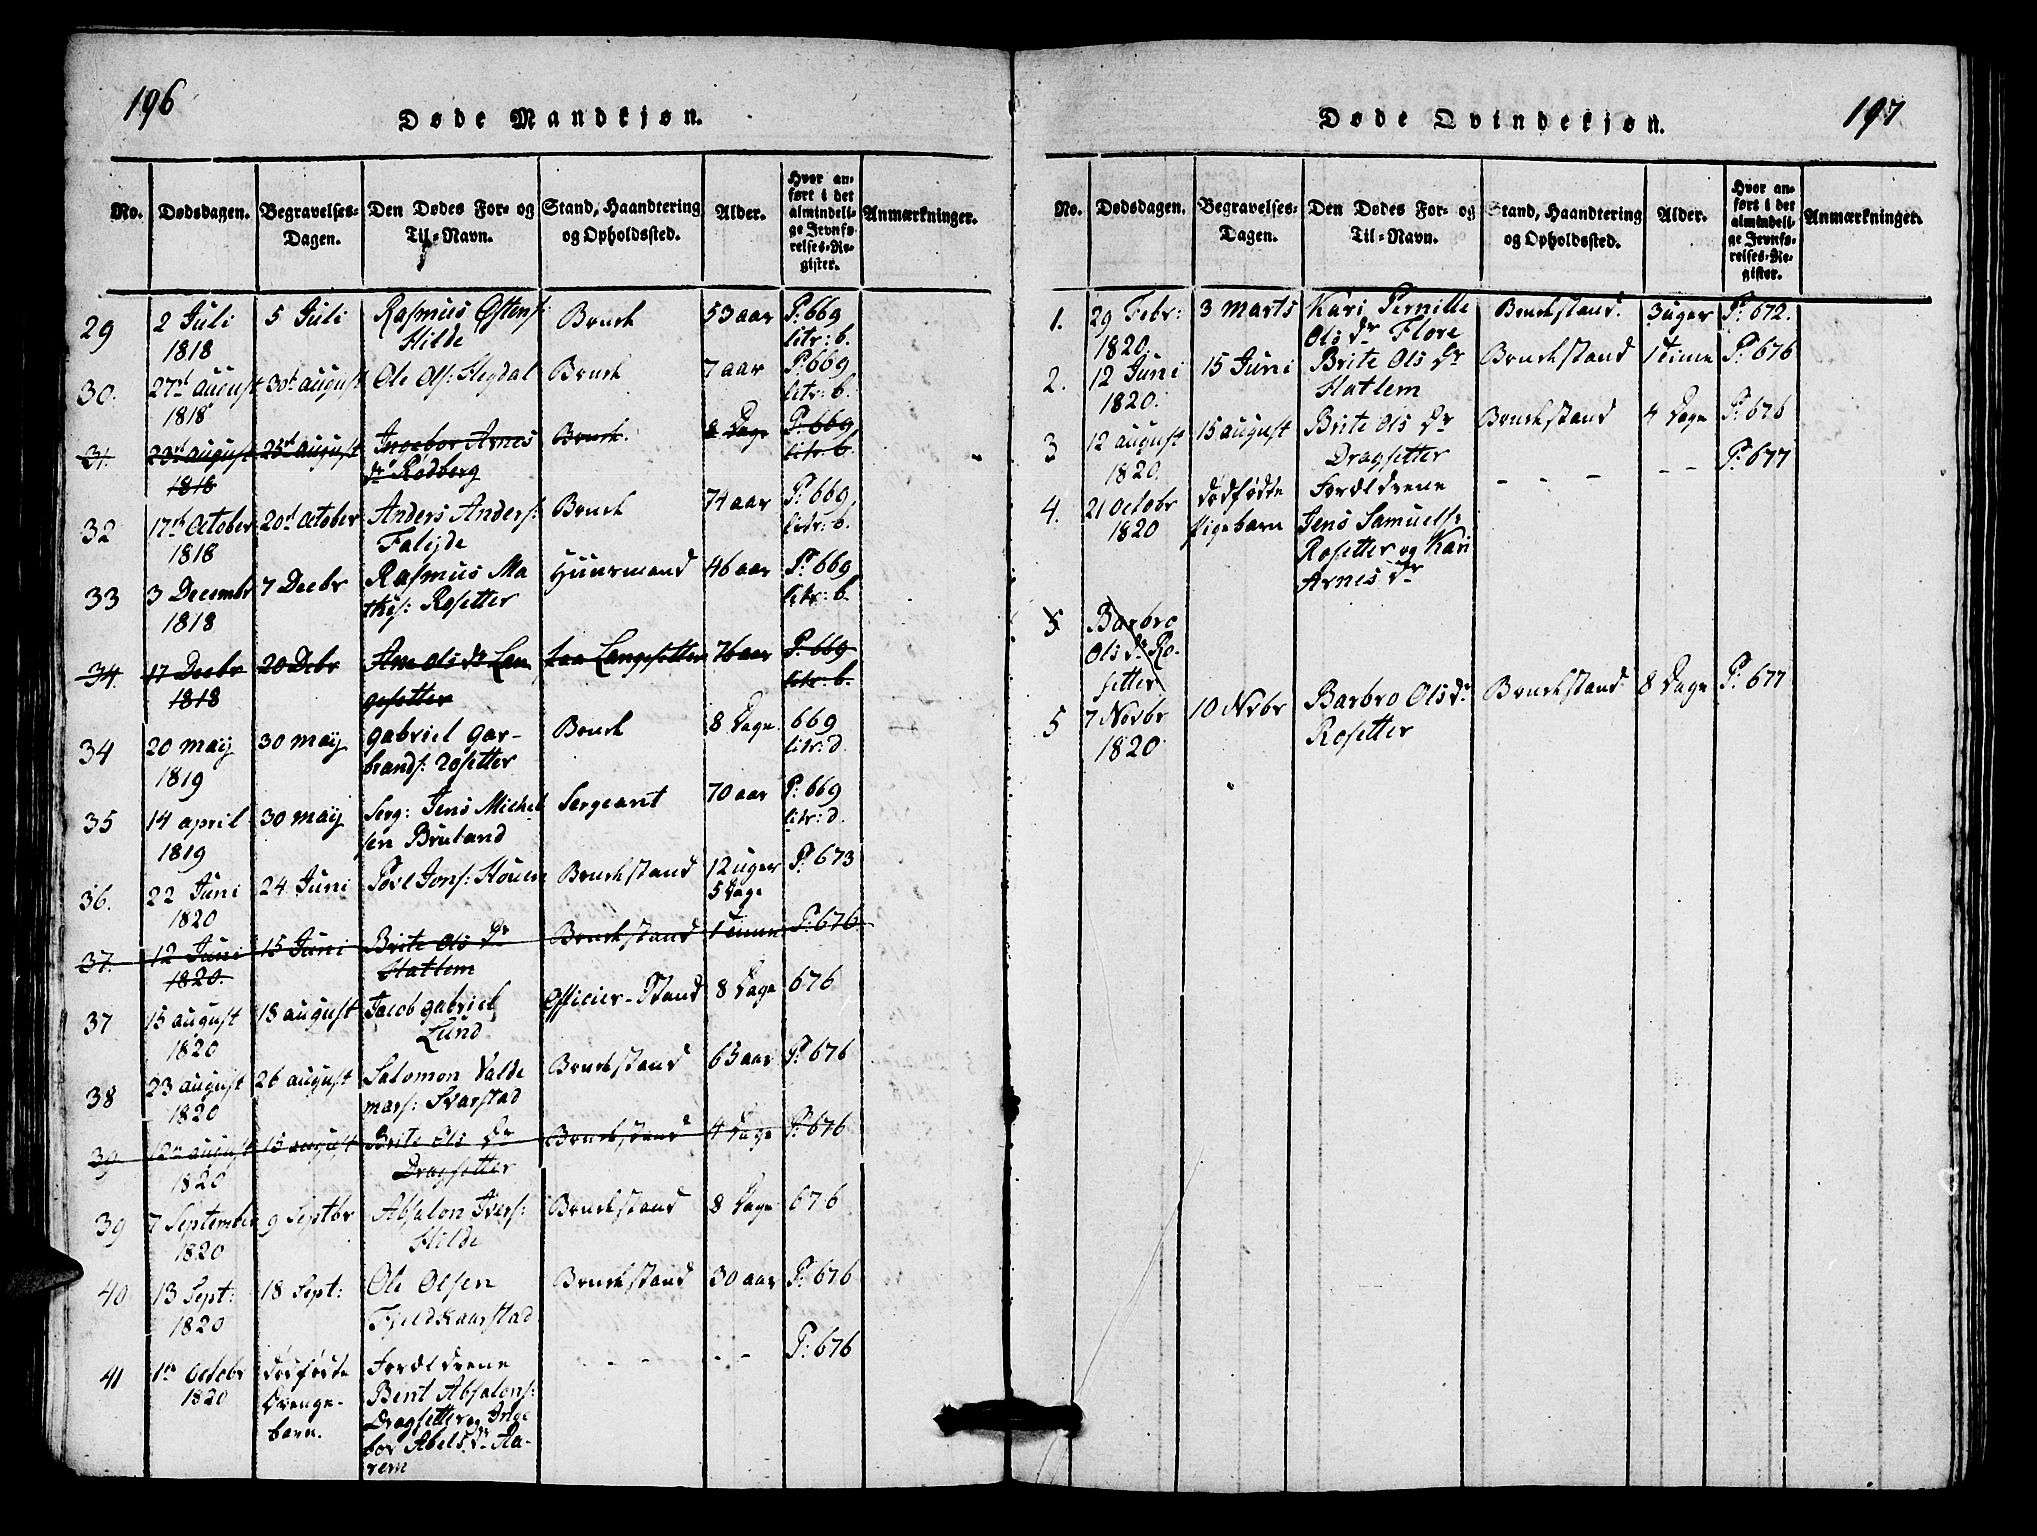 196
Døde Mandkjøn.
No. Dødsdagen. Begravelses-Dagen. Den Dødes For- og Til-Navn. Stand, Haandtering og Opholdssted. Alder. Hvor anført i det almindelige Jevnførelses-Register. Anmærkninger.
29 2 Juli 5 Juli Rasmus Ostens: Bondt 53 aar P: 669
1818 Hilde litr: b.
30. 27de august 30te august Ole Ols: Hegdal Bondt 7 aar P: 669
1818 litr: b.
31. 23de august 25de august Ingebor Arnes Bondt. 8 Dage P: 669
1818 Dr Rødberg litr: b.
32 17de October 20de October Anders Anders: Bondt 74 aar P: 669
1818 Faleide litr: b.
33 3 Decembr 7 Decbr Rasmus Ma Huusmand 46 aar P: 669
1818 thæs: Rosetter litr: b.
34. 17 Decbr 20 Debr Ane Ols Dr Lan fra Langesetter 76 aar P: 669
1818 gesetter litr: b.
34 20 may 30 may Gabriel Gar- Bondt 8 Dage 669
1819 brands: Rosetter litr: d.
35 14 april 30 may Serg: Jens Michel Sergeant 70 aar P: 669
1819 sen Bruland litr: d.
36. 22 Juni 24 Juni Povl Jons: Houen Bondestand 12 uger P: 673
1820 5 Dage
37. 12 Juni 15 Juni Brite Ols Dr Bondestand 1 Time P: 676
1820. Hatlem
37 15 august 18 august Jacob Gabriel Officier-Stand 8 Dage 676
1820 Lund
38 23 august 26 august Salomon Valde Bondestand 63 aar P: 676
1820 mars: Svarstad
39 12te august 15 august Brite Ols Dr Bondestand 4 Dage P: 676
1820 Dragsetter
39 7 September 9 Septbr Absalon Ivers: Bondestand 8 Dage 676
1820 Hilde
40 13 Sept: 18 Sept: Ole Olsen Bondestand 30 aar P: 676
1820 Fjeldkaarstad
41 1te Octobr dødfødte Forældrene - - - - - P: 676
1820 Drenge- Bent Absalons:
barn. Dragsetter og Inge
bor Abels Dr Aa-
rem
197
Døde Qvindekjøn.
No. Dødsdagen. Begravelses-Dagen. Den Dødes For- og Til-Navn. Stand, Haandtering og Opholdssted. Alder. Hvor anført i det almindelige Jevnførelses-Register. Anmærkninger.
1. 29 Febr: 3 Marts Kari Pernille Bondestand. 3 uger P: 672.
1820 Ols Dr Flore
2. 12 Juni 15 Juni Brite Ols Dr Bondestand 1 Time P: 676
1820. Hatlem
3 12 august 15 august Brite Ols Dr Bondestand 4 Dage P: 676
1820. Dragsetter
4. 21 Octobr dødfødte Forældrene - - - - - P: 677
1820 Pigebarn Jens Samuels:
Rosetter og Kari
Arnes Dr
5 Barbro
Ols Dr Ro-
setter
5 7 Novbr 10 Novbr Barbro Ols Dr Bondestand 8 Dage P: 677
1820 Rosetter